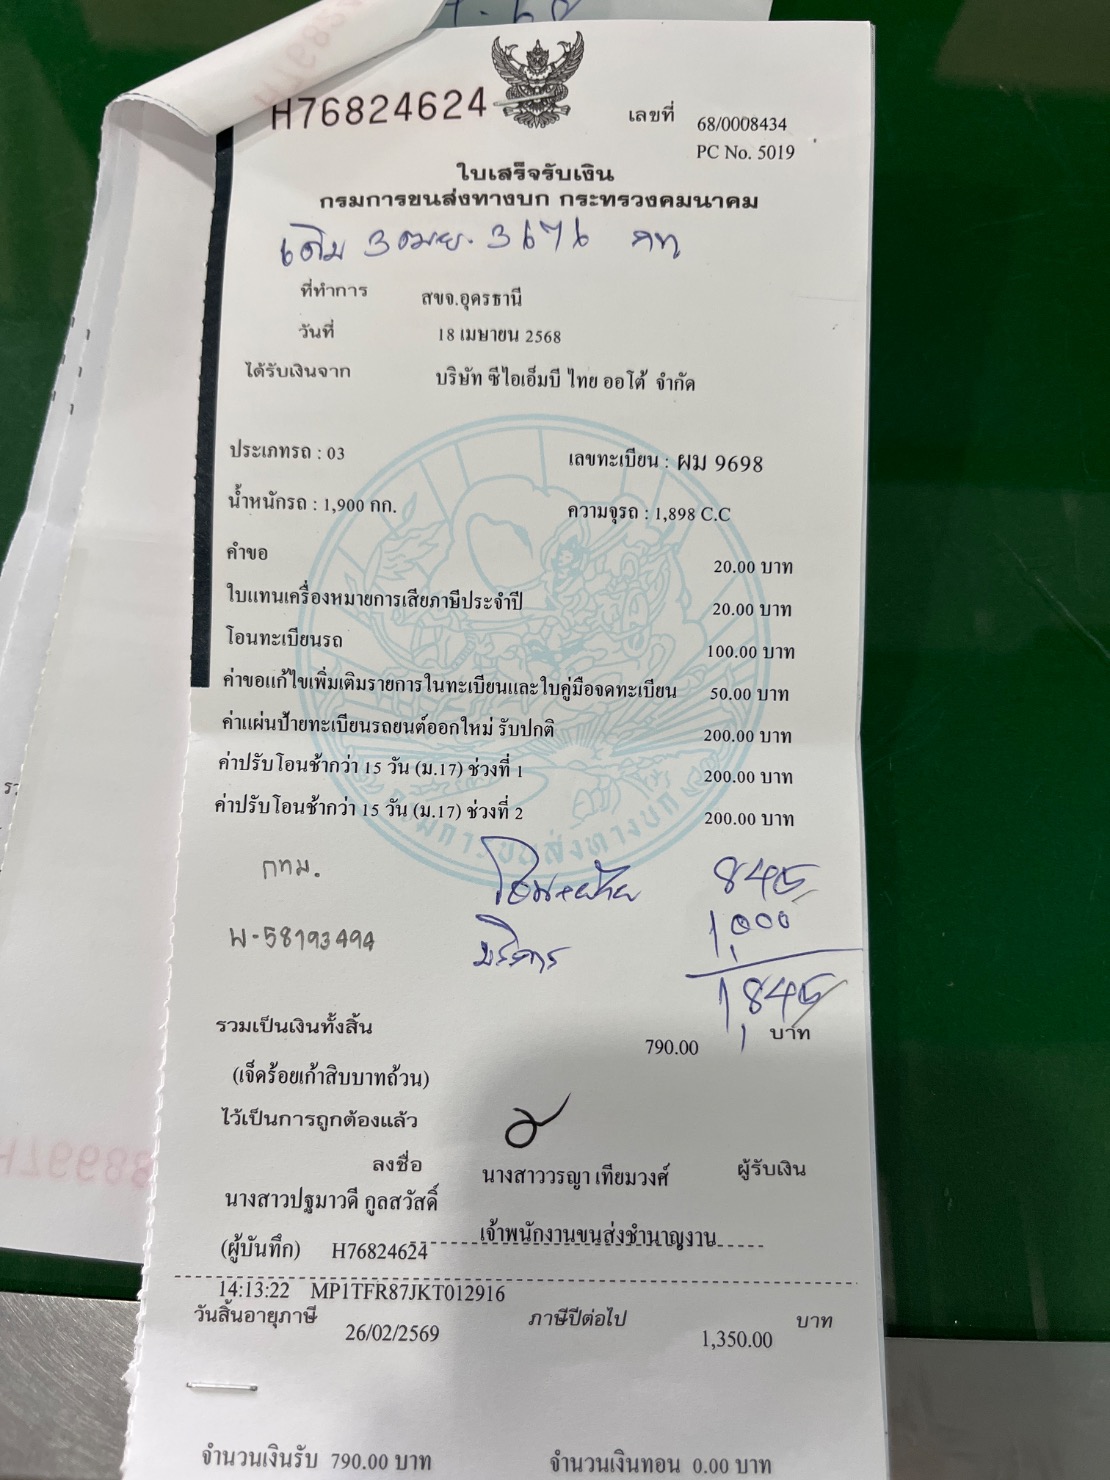 H76824624
เลขที่ 68/0008434
PC No. 5019
ใบเสร็จรับเงิน
กรมการขนส่งทางบก กระทรวงคมนาคม
เดิม 3ฒย. 3676 กท
ที่ทำการ สขจ.อุดรธานี
วันที่ 18 เมษายน 2568
ได้รับเงินจาก บริษัท ซีไอเอ็มบี ไทย ออโต้ จำกัด
ประเภทรถ : 03 เลขทะเบียน : ผม 9698
น้ำหนักรถ : 1,900 กก. ความจุรถ : 1,898 C.C
คำขอ 20.00 บาท
ใบแทนเครื่องหมายการเสียภาษีประจำปี 20.00 บาท
โอนทะเบียนรถ 100.00 บาท
ค่าขอแก้ไขเพิ่มเติมรายการในทะเบียนและใบคู่มือจดทะเบียน 50.00 บาท
ค่าแผ่นป้ายทะเบียนรถยนต์ออกใหม่ รับปกติ 200.00 บาท
ค่าปรับโอนช้ากว่า 15 วัน (ม.17) ช่วงที่ 1 200.00 บาท
ค่าปรับโอนช้ากว่า 15 วัน (ม.17) ช่วงที่ 2 200.00 บาท
กรมการขนส่งทางบก
กทม. 845
W-58193494 บริการ 1,000
1,845
รวมเป็นเงินทั้งสิ้น 790.00 บาท
(เจ็ดร้อยเก้าสิบบาทถ้วน)
ไว้เป็นการถูกต้องแล้ว
ลงชื่อ นางสาววรญา เทียมวงศ์ ผู้รับเงิน
นางสาวปฐมาวดี กูลสวัสดิ์
เจ้าพนักงานขนส่งชำนาญงาน
(ผู้บันทึก) H76824624
14:13:22 MP1TFR87JKT012916
วันสิ้นอายุภาษี 26/02/2569 ภาษีปีต่อไป 1,350.00 บาท
จำนวนเงินรับ 790.00 บาท จำนวนเงินทอน 0.00 บาท